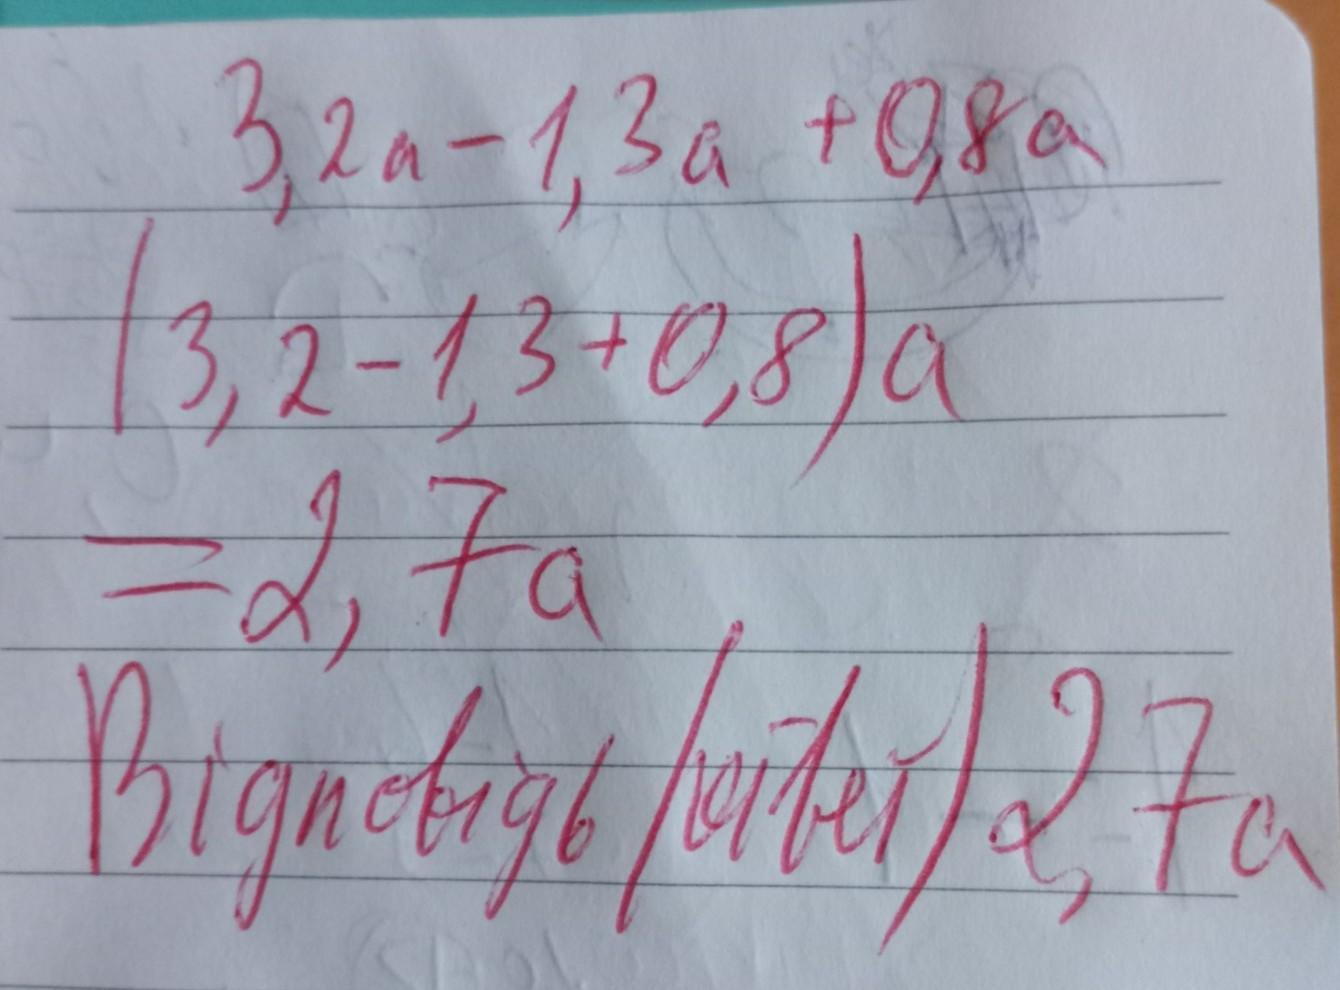 3,2a-1,3a +0,8a
(3,2-1,3+0,8)a
=2,7a
Відповідь 2,7a